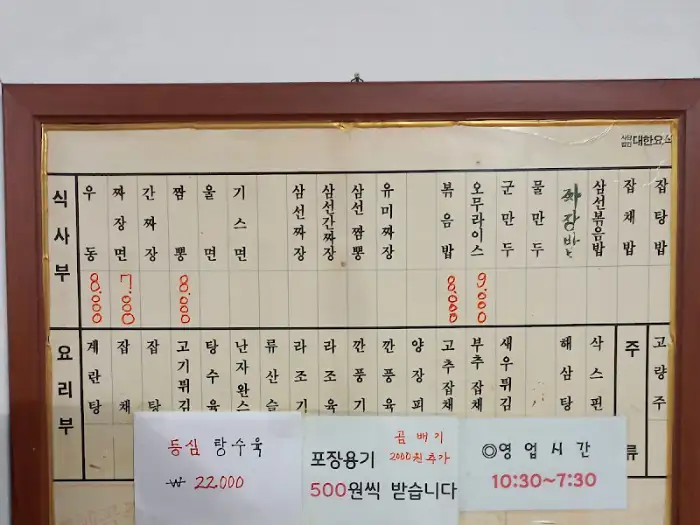 사단
법인 대한요식
식사부
우동 8.000
짜장면 7.000
간짜장
짬뽕 8.000
울면
기스면
삼선짜장
삼선간짜장
삼선짬뽕
유미짜장
볶음밥 8.000
오무라이스 9.000
군만두
물만두
짜장밥
삼선볶음밥
잡채밥
잡탕밥
요리부
계란탕
잡채
잡탕
고기튀김
탕수육
난자완스
류산슬
라조기
라조육
깐풍기
깐풍육
양장피
고추잡채
부추잡채
새우튀김
해삼탕
삭스핀
주류
고량주
등심 탕수육
₩ 22.000
곰배기
2000원추가
포장용기
500원씩 받습니다
◎영업시간
10:30~7:30